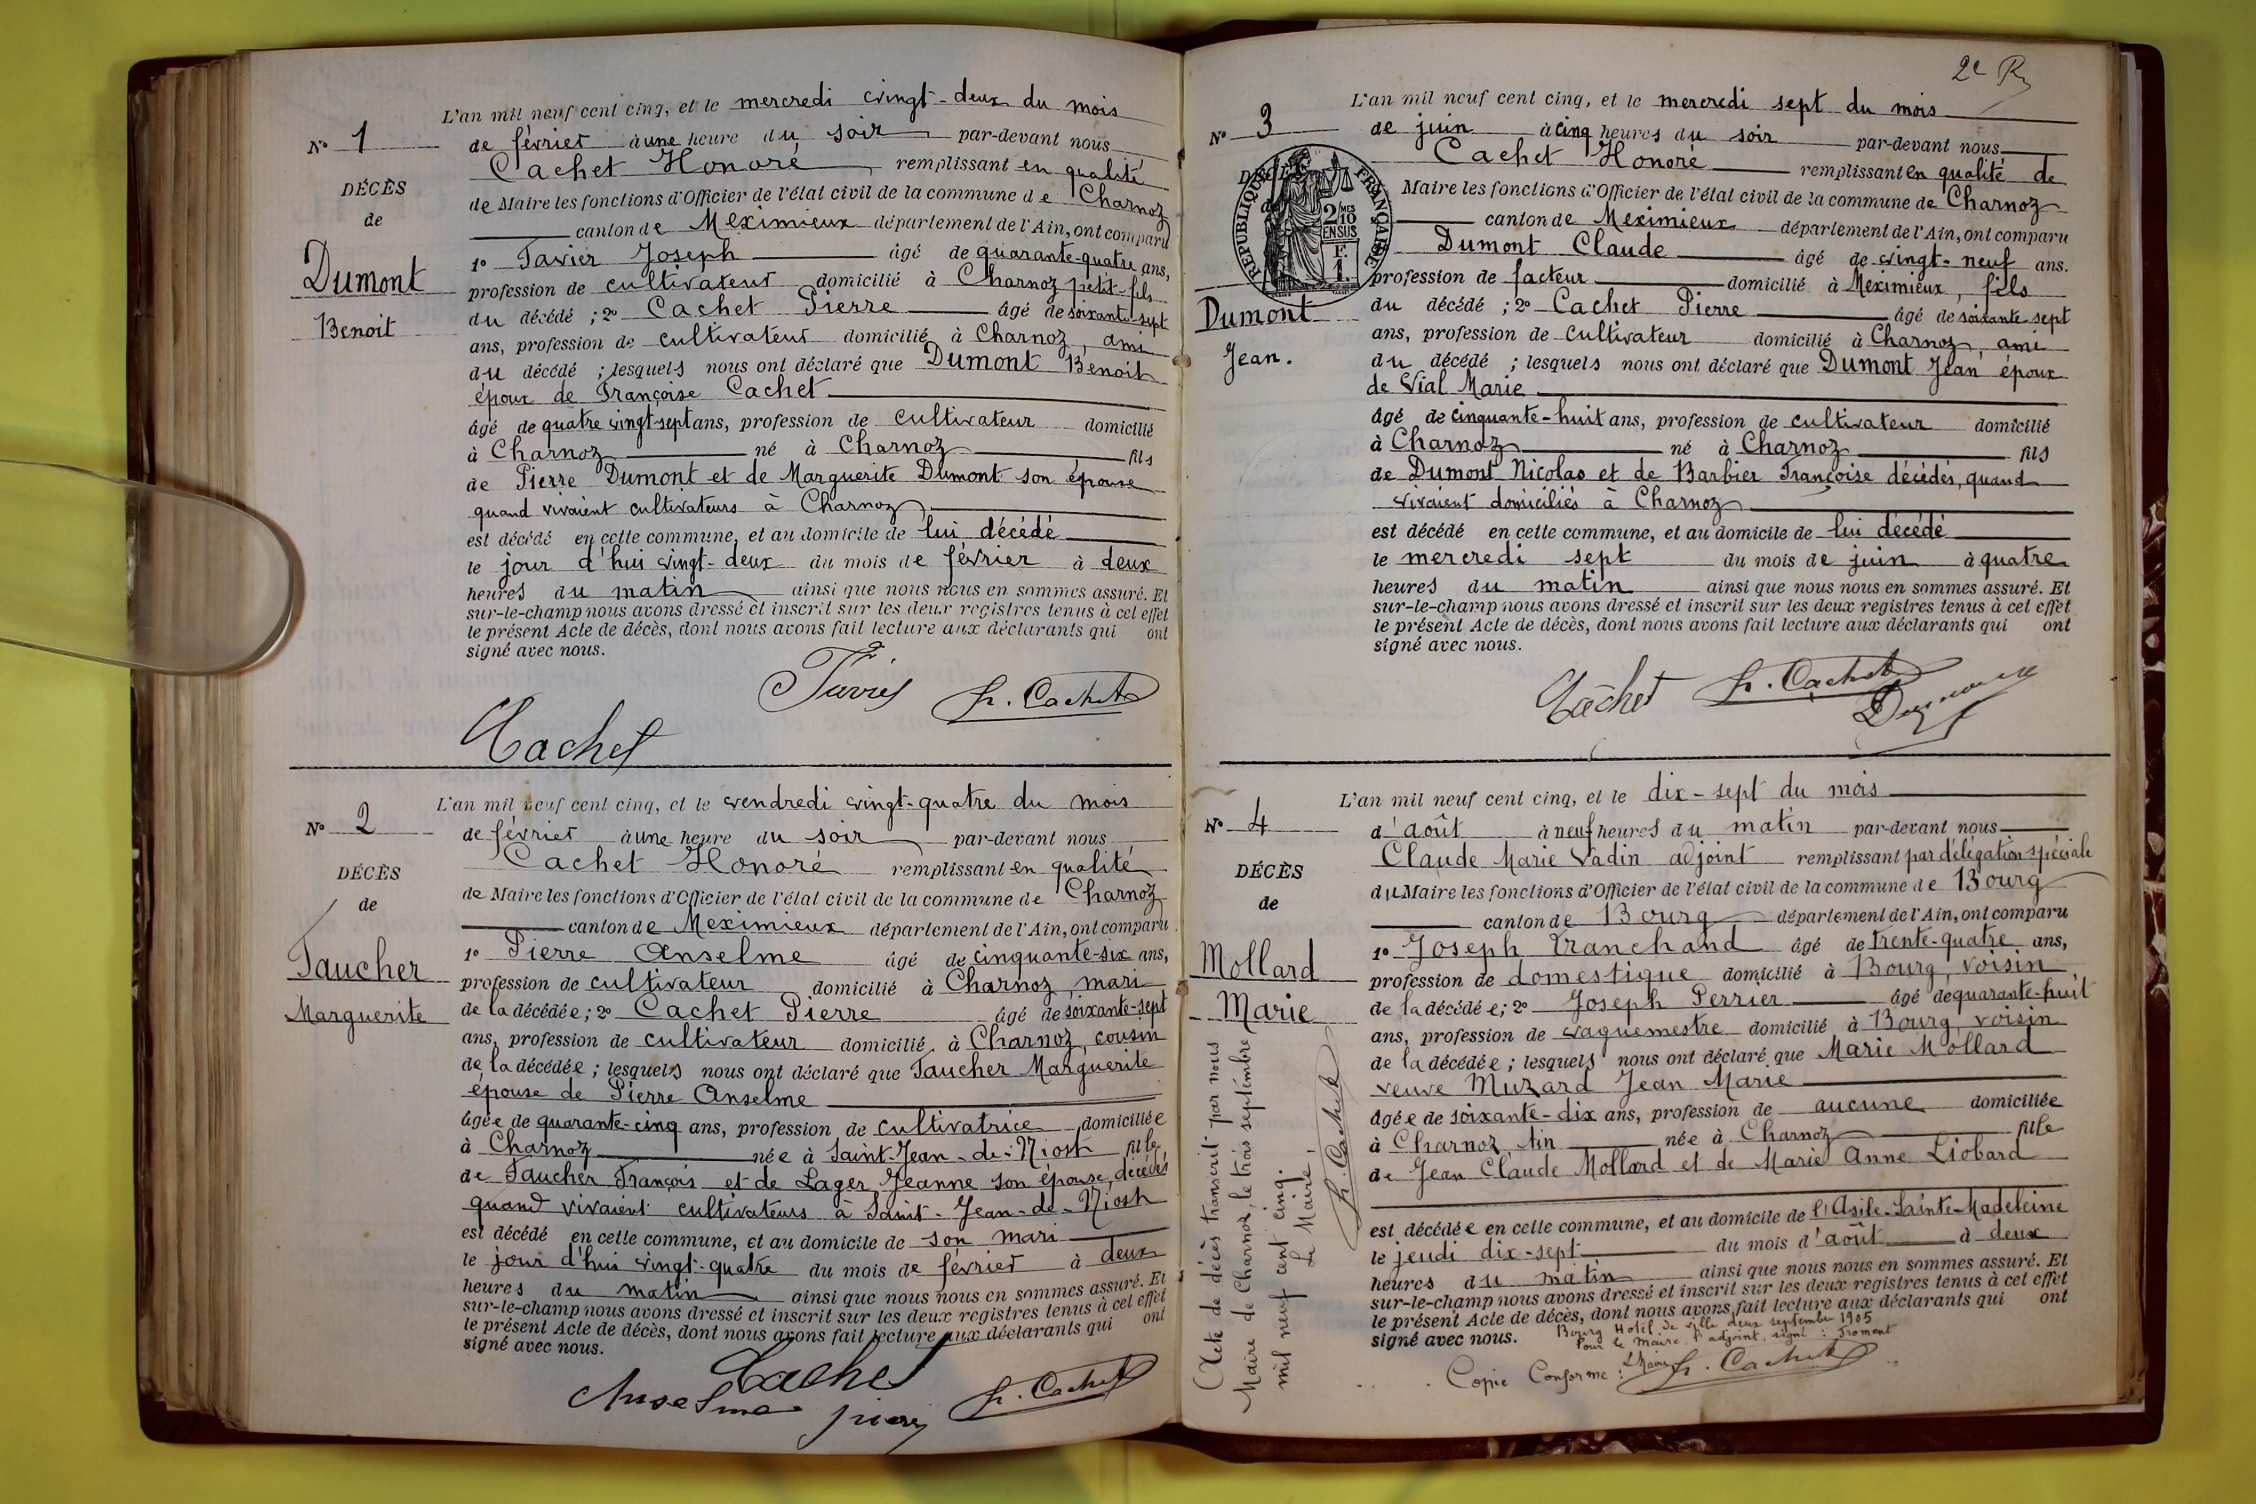 L'an mil neuf cent cinq, et le mercredi vingt-deux du mois
N° 1
de février à une heure du soir par-devant nous
Cachet Honoré remplissant en qualité
DÉCÈS
de Maire les fonctions d'Officier de l'état civil de la commune de Charnoz
de
canton de Meximieux département de l'Ain, ont comparu
1° Favier Joseph âgé de quarante-quatre ans,
Dumont
profession de cultivateur domicilié à Charnoz petit-fils
Benoit
du décédé ; 2° Cachet Pierre âgé de soixante-sept
ans, profession de cultivateur domicilié à Charnoz, ami
du décédé ; lesquels nous ont déclaré que Dumont Benoit
époux de Françoise Cachet
âgé de quatre vingt sept ans, profession de cultivateur domicilié
à Charnoz né à Charnoz fils
de Pierre Dumont et de Marguerite Dumont son épouse
quand vivaient cultivateurs à Charnoz
est décédé en cette commune, et au domicile de lui décédé
le jour d'hui vingt-deux du mois de février à deux
heures du matin ainsi que nous nous en sommes assuré. Et
sur-le-champ nous avons dressé et inscrit sur les deux registres tenus à cet effet
le présent Acte de décès, dont nous avons fait lecture aux déclarants qui ont
signé avec nous.
Favier h. Cachet
Cachet
L'an mil neuf cent cinq, et le vendredi vingt-quatre du mois
N° 2
de février à une heure du soir par-devant nous
Cachet Honoré remplissant en qualité
DÉCÈS
de Maire les fonctions d'Officier de l'état civil de la commune de Charnoz
de
canton de Meximieux département de l'Ain, ont comparu
1° Pierre Anselme âgé de cinquante-six ans,
Faucher
profession de cultivateur domicilié à Charnoz, mari
Marguerite
de la décédée ; 2° Cachet Pierre âgé de soixante-sept
ans, profession de cultivateur domicilié à Charnoz, cousin
de la décédée ; lesquels nous ont déclaré que Faucher Marguerite
épouse de Pierre Anselme
âgée de quarante-cinq ans, profession de cultivatrice domiciliée
à Charnoz née à Saint-Jean-de-Niost fille
de Faucher François et de Lager Jeanne son épouse, décédés
quand vivaient cultivateurs à Saint-Jean-de-Niost
est décédé en cette commune, et au domicile de son mari
le jour d'hui vingt-quatre du mois de février à deux
heures du matin ainsi que nous nous en sommes assuré. Et
sur-le-champ nous avons dressé et inscrit sur les deux registres tenus à cet effet
le présent Acte de décès, dont nous avons fait lecture aux déclarants qui ont
signé avec nous.
Cachet
Anselme pierre h. Cachet
2e
L'an mil neuf cent cinq, et le mercredi sept du mois
N° 3
de juin à cinq heures du soir par-devant nous
Cachet Honoré remplissant en qualité de
Maire les fonctions d'Officier de l'état civil de la commune de Charnoz
RÉPUBLIQUE FRANÇAISE
2/MES
10
EN SUS
F.
1.
canton de Meximieux département de l'Ain, ont comparu
Dumont Claude âgé de vingt-neuf ans.
profession de facteur domicilié à Meximieux, fils
Dumont
Jean.
du décédé ; 2° Cachet Pierre âgé de soixante sept
ans, profession de cultivateur domicilié à Charnoz, ami
du décédé ; lesquels nous ont déclaré que Dumont Jean époux
de Vial Marie
âgé de cinquante-huit ans, profession de cultivateur domicilié
à Charnoz né à Charnoz fils
de Dumont Nicolas et de Barbier Françoise décédés, quand
vivaient domiciliés à Charnoz
est décédé en cette commune, et au domicile de lui décédé
le mercredi sept du mois de juin à quatre
heures du matin ainsi que nous nous en sommes assuré. Et
sur-le-champ nous avons dressé et inscrit sur les deux registres tenus à cet effet
le présent Acte de décès, dont nous avons fait lecture aux déclarants qui ont
signé avec nous.
Cachet h. Cachet
Dumont
L'an mil neuf cent cinq, et le dix-sept du mois
N° 4
d'août à neuf heures du matin par-devant nous
Claude Marie Vadin adjoint remplissant par délégation spéciale
DÉCÈS
du Maire les fonctions d'Officier de l'état civil de la commune de Bourg
de
canton de Bourg département de l'Ain, ont comparu
1° Joseph Tranchand âgé de trente-quatre ans,
Mollard
profession de domestique domicilié à Bourg, voisin
Marie
de la décédée ; 2° Joseph Perrier âgé de quarante-huit
ans, profession de vaguemestre domicilié à Bourg, voisin
de la décédée ; lesquels nous ont déclaré que Marie Mollard
veuve Muzard Jean Marie
âgée de soixante-dix ans, profession de aucune domiciliée
à Charnoz Ain née à Charnoz fille
de Jean Claude Mollard et de Marie Anne Liobard
est décédée en cette commune, et au domicile de l'Asile-Sainte-Madeleine
le jeudi dix-sept du mois d'août à deux
heures du matin ainsi que nous nous en sommes assuré. Et
sur-le-champ nous avons dressé et inscrit sur les deux registres tenus à cet effet
le présent Acte de décès, dont nous avons fait lecture aux déclarants qui ont
signé avec nous.
Bourg Hotel de ville deux septembre 1905
Pour le maire l'adjoint, signé : Fromont
Copie Conforme : L. Maire h. Cachet
Acte de décès transcrit par nous
Maire de Charnoz, le trois septembre
mil neuf cent cinq.
Le Maire,
h. Cachet